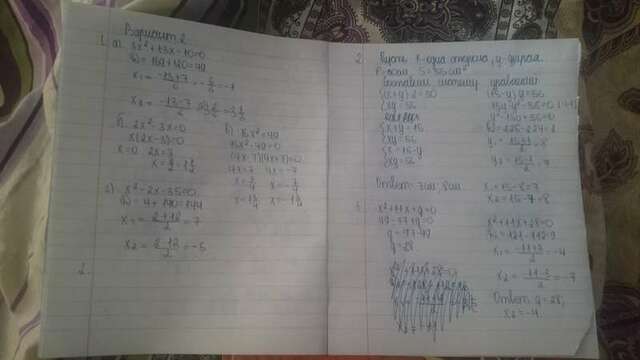 Вариант 2
1. а) 3x²+13x-10=0
D=169+120=49
x₁= -13+7/6 = -6/6 = -1
x₂= -13-7/6
б) 2x²-3x=0
x(2x-3)=0
x=0 2x=3
x=3/2=1 1/2
в) 16x²=49
16x²-49=0
(4x-7)(4x+7)=0
4x=7 4x=-7
x=7/4 x=-7/4
x=1 3/4 x=-1 3/4
г) x²-2x-35=0
D=4+140=144
x₁= 2+12/2 = 7
x₂= 2-12/2 = -5
2.
2. Пусть x-одна сторона, y-другая.
P=30см, S=56см²
Составим систему уравнений
{(x+y)·2=30
{xy=56
{x+y=15
{xy=56
{x=15-y
{xy=56
(15-y)y=56
15y-y²-56=0
y²-15y+56=0
D=225-224=1
y₁= 15+1/2 = 8
y₂= 15-1/2 = 7
x₁=15-8=7
x₂=15-7=8
Ответ: 7см, 8см
3. x²+11x+q=0
49-77+q=0
q=77-49
q=28
x²+11x+28=0
D=121-112=9
x₁= -11+3/2 = -4
x₂= -11-3/2 = -7
Ответ: q=28;
x₂=-4